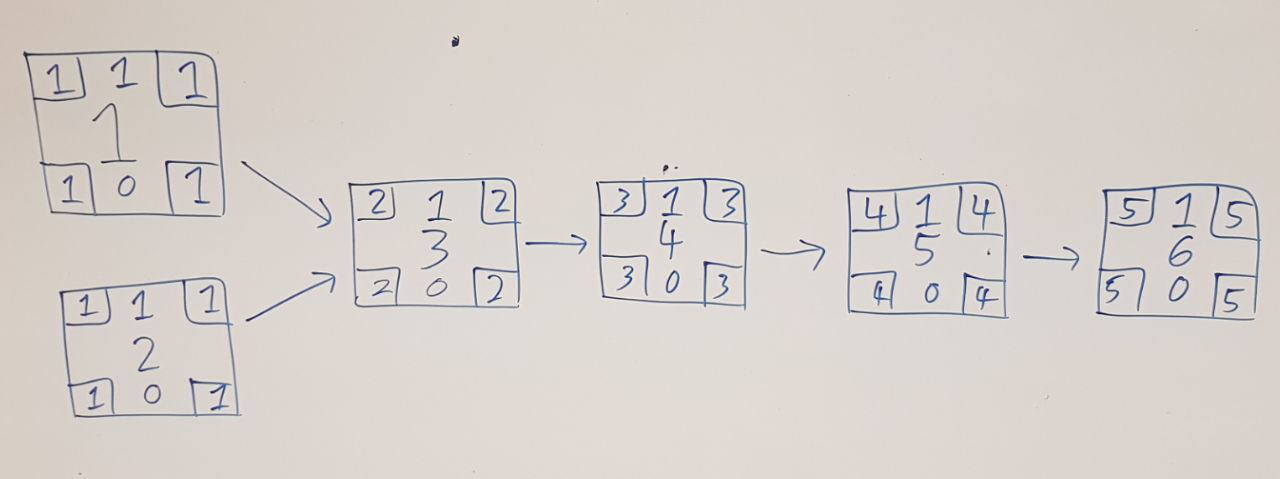 1 1 1
1
1 0 1
1 1 1
2
1 0 1
2 1 2
3
2 0 2
3 1 3
4
3 0 3
4 1 4
5
4 0 4
5 1 5
6
5 0 5